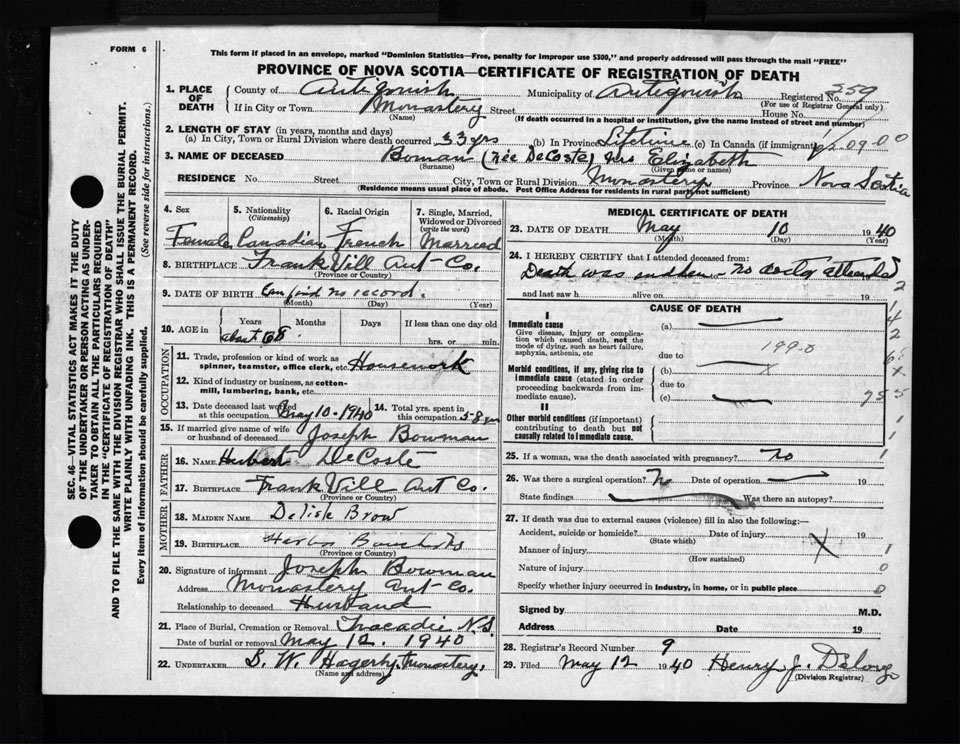 FORM 6
This form if placed in an envelope, marked "Dominion Statistics—Free, penalty for improper use $300," and properly addressed will pass through the mail "FREE"
PROVINCE OF NOVA SCOTIA—CERTIFICATE OF REGISTRATION OF DEATH
1. PLACE OF DEATH County of Antigonish Municipality of Antigonish Registered No. 259
(For use of Registrar General only)
If in City or Town Monastery Street House No.
(Name) (If death occurred in a hospital or institution, give the name instead of street and number)
2. LENGTH OF STAY (in years, months and days)
(a) In City, Town or Rural Division where death occurred 33 yrs (b) In Province Lifetime (c) In Canada (if immigrant)
3. NAME OF DECEASED Boman (née DeCoste) Mrs Elizabeth
(Surname) (Given name or names)
RESIDENCE No. Street City, Town or Rural Division Monastery Province Nova Scotia
(Residence means usual place of abode. Post Office Address for residents in rural parts not sufficient)
4. Sex 5. Nationality (Citizenship) 6. Racial Origin 7. Single, Married, Widowed or Divorced (write the word)
Female Canadian French Married
8. BIRTHPLACE Frank Vill Ant Co.
(Province or Country)
9. DATE OF BIRTH Can find no record.
(Month) (Day) (Year)
10. AGE in Years Months Days If less than one day old
about 68 hrs. or min.
OCCUPATION
11. Trade, profession or kind of work as spinner, teamster, office clerk, etc. Housework
12. Kind of industry or business, as cotton-mill, lumbering, bank, etc.
13. Date deceased last worked at this occupation May 10-1940 14. Total yrs. spent in this occupation 58 yrs
15. If married give name of wife or husband of deceased Joseph Bowman
FATHER
16. NAME Hubert DeCoste
17. BIRTHPLACE Frank Vill Ant Co.
(Province or Country)
MOTHER
18. MAIDEN NAME Brow
19. BIRTHPLACE
(Province or Country)
20. Signature of informant Joseph Bowman
Address Monastery Ant Co.
Relationship to deceased Husband
21. Place of Burial, Cremation or Removal Tracadie N.S.
Date of burial or removal May 12. 1940
22. UNDERTAKER S. W. Hagerty, Monastery.
(Name and address)
MEDICAL CERTIFICATE OF DEATH
23. DATE OF DEATH May 10 1940
(Month) (Day) (Year)
24. I HEREBY CERTIFY that I attended deceased from:
Death was sudden - no doctor attended
and last saw h alive on 19
CAUSE OF DEATH
I
Immediate cause (a)
Give disease, injury or complication which caused death, not the mode of dying, such as heart failure, asphyxia, asthenia, etc
due to
Morbid conditions, if any, giving rise to immediate cause (stated in order proceeding backwards from immediate cause).
(b)
due to
(c)
II
Other morbid conditions (if important) contributing to death but not causally related to immediate cause.
25. If a woman, was the death associated with pregnancy? No
26. Was there a surgical operation? No Date of operation 19
State findings Was there an autopsy?
27. If death was due to external causes (violence) fill in also the following:—
Accident, suicide or homicide? Date of injury 19
(State which)
Manner of injury
(How sustained)
Nature of injury
Specify whether injury occurred in industry, in home, or in public place
Signed by M.D.
Address Date 19
28. Registrar's Record Number 9
29. Filed May 12 1940 Henry J. DeLong
(Division Registrar)
SEC. 46—VITAL STATISTICS ACT MAKES IT THE DUTY
OF THE UNDERTAKER OR PERSON ACTING AS UNDER-
TAKER TO OBTAIN ALL THE PARTICULARS REQUIRED
IN THE "CERTIFICATE OF REGISTRATION OF DEATH"
AND TO FILE THE SAME WITH THE DIVISION REGISTRAR WHO SHALL ISSUE THE BURIAL PERMIT.
WRITE PLAINLY WITH UNFADING INK. THIS IS A PERMANENT RECORD.
Every item of information should be carefully supplied. (See reverse side for instructions.)